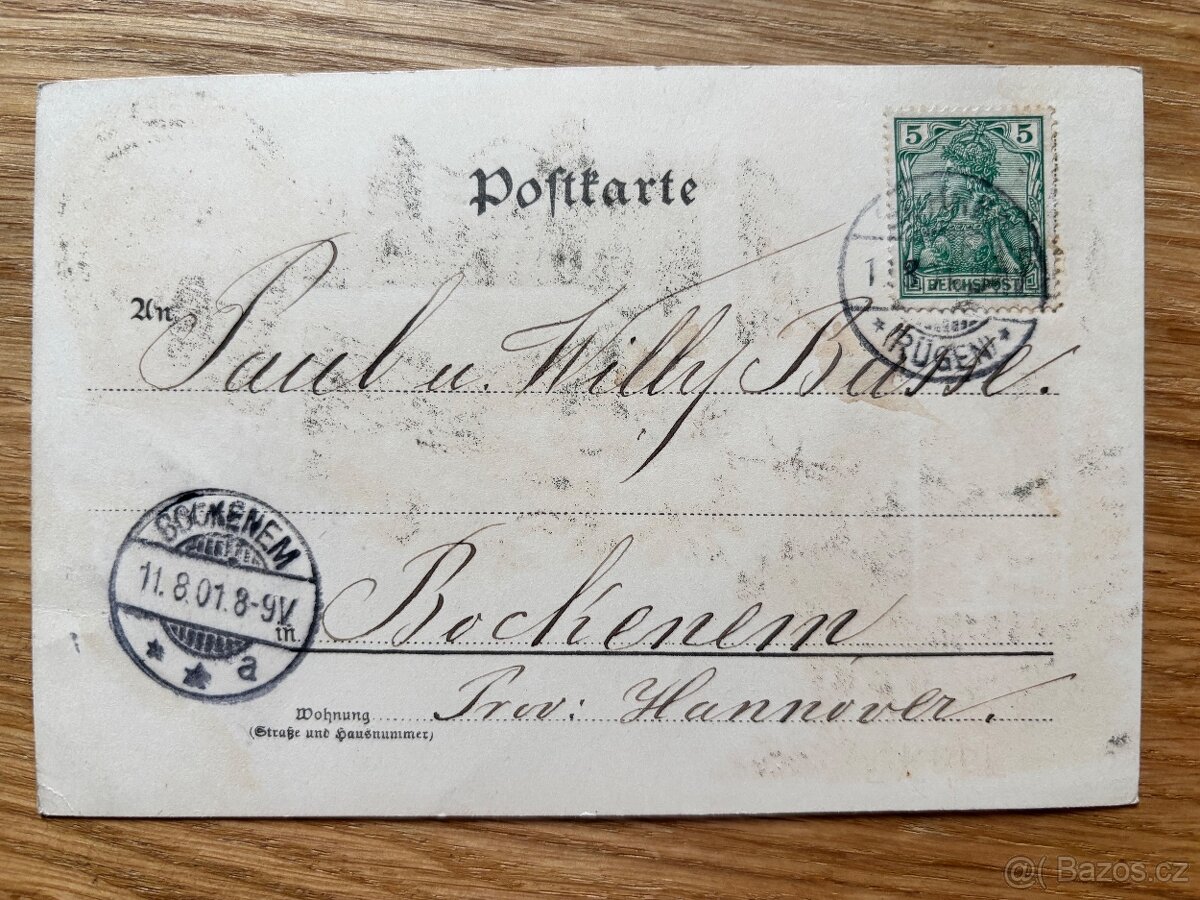 Postkarte
5 5
REICHSPOST
(RÜGEN)
An Paul u. Willy Busse.
BOCKENEM
11.8.01.8-9V.
a
in Bockenem
Prov: Hannover.
Wohnung
(Straße und Hausnummer)
@( Bazos.cz